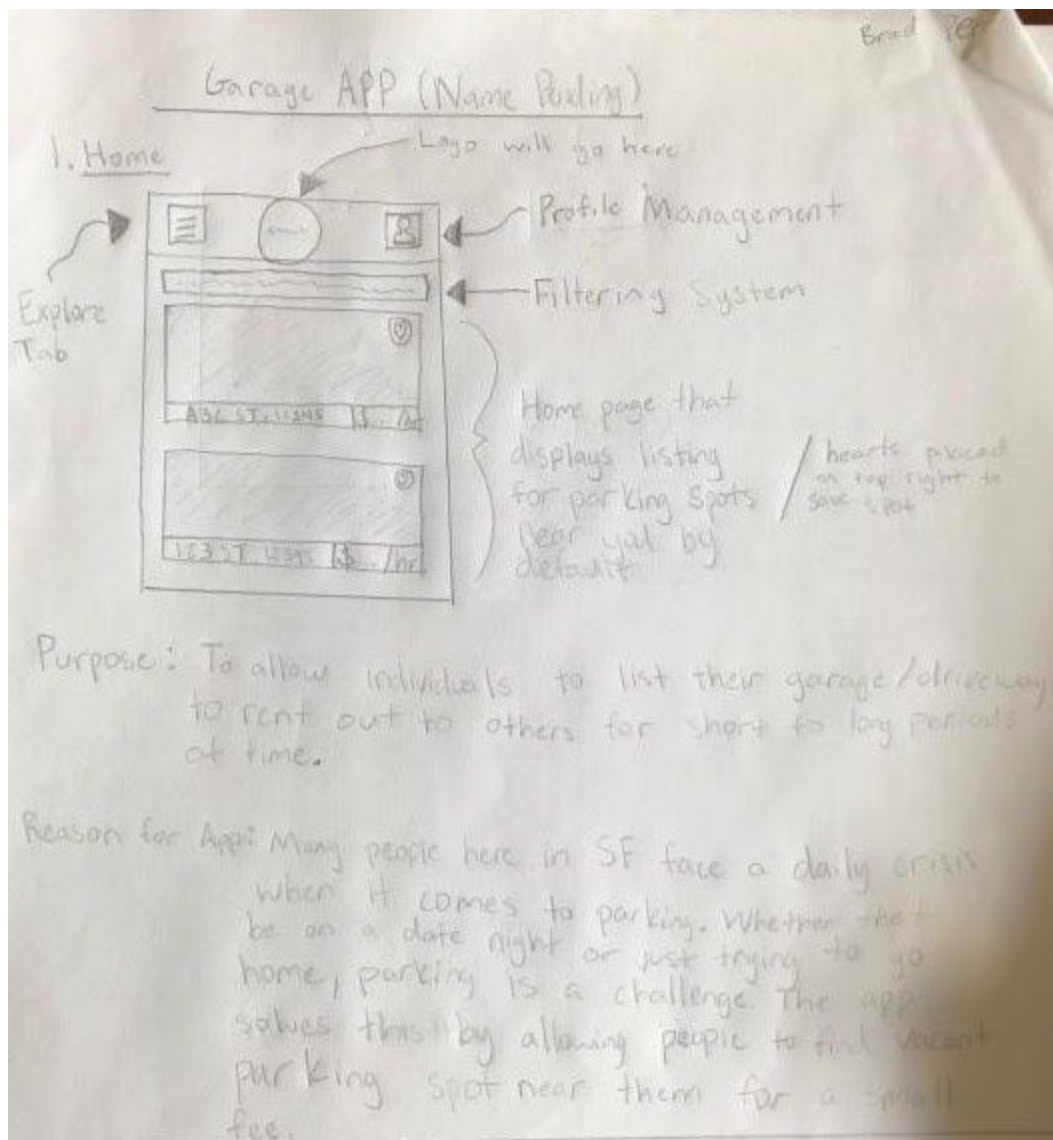 Brad
Garage APP (Name Pending)
1. Home
Logo will go here
Profile Management
Filtering System
Explore
Tab
ABC ST. $ /hr
123 ST. $ /hr
Home page that
displays listing
for parking spots
near you by
default
/ hearts placed
on top right to
save spot
Purpose: To allow individuals to list their garage/driveway
to rent out to others for short to long periods
of time.
Reason for App: Many people here in SF face a daily crisis
when it comes to parking. Whether that
be on a date night or just trying to go
home, parking is a challenge. The app
solves this by allowing people to find vacant
parking spot near them for a small
fee.